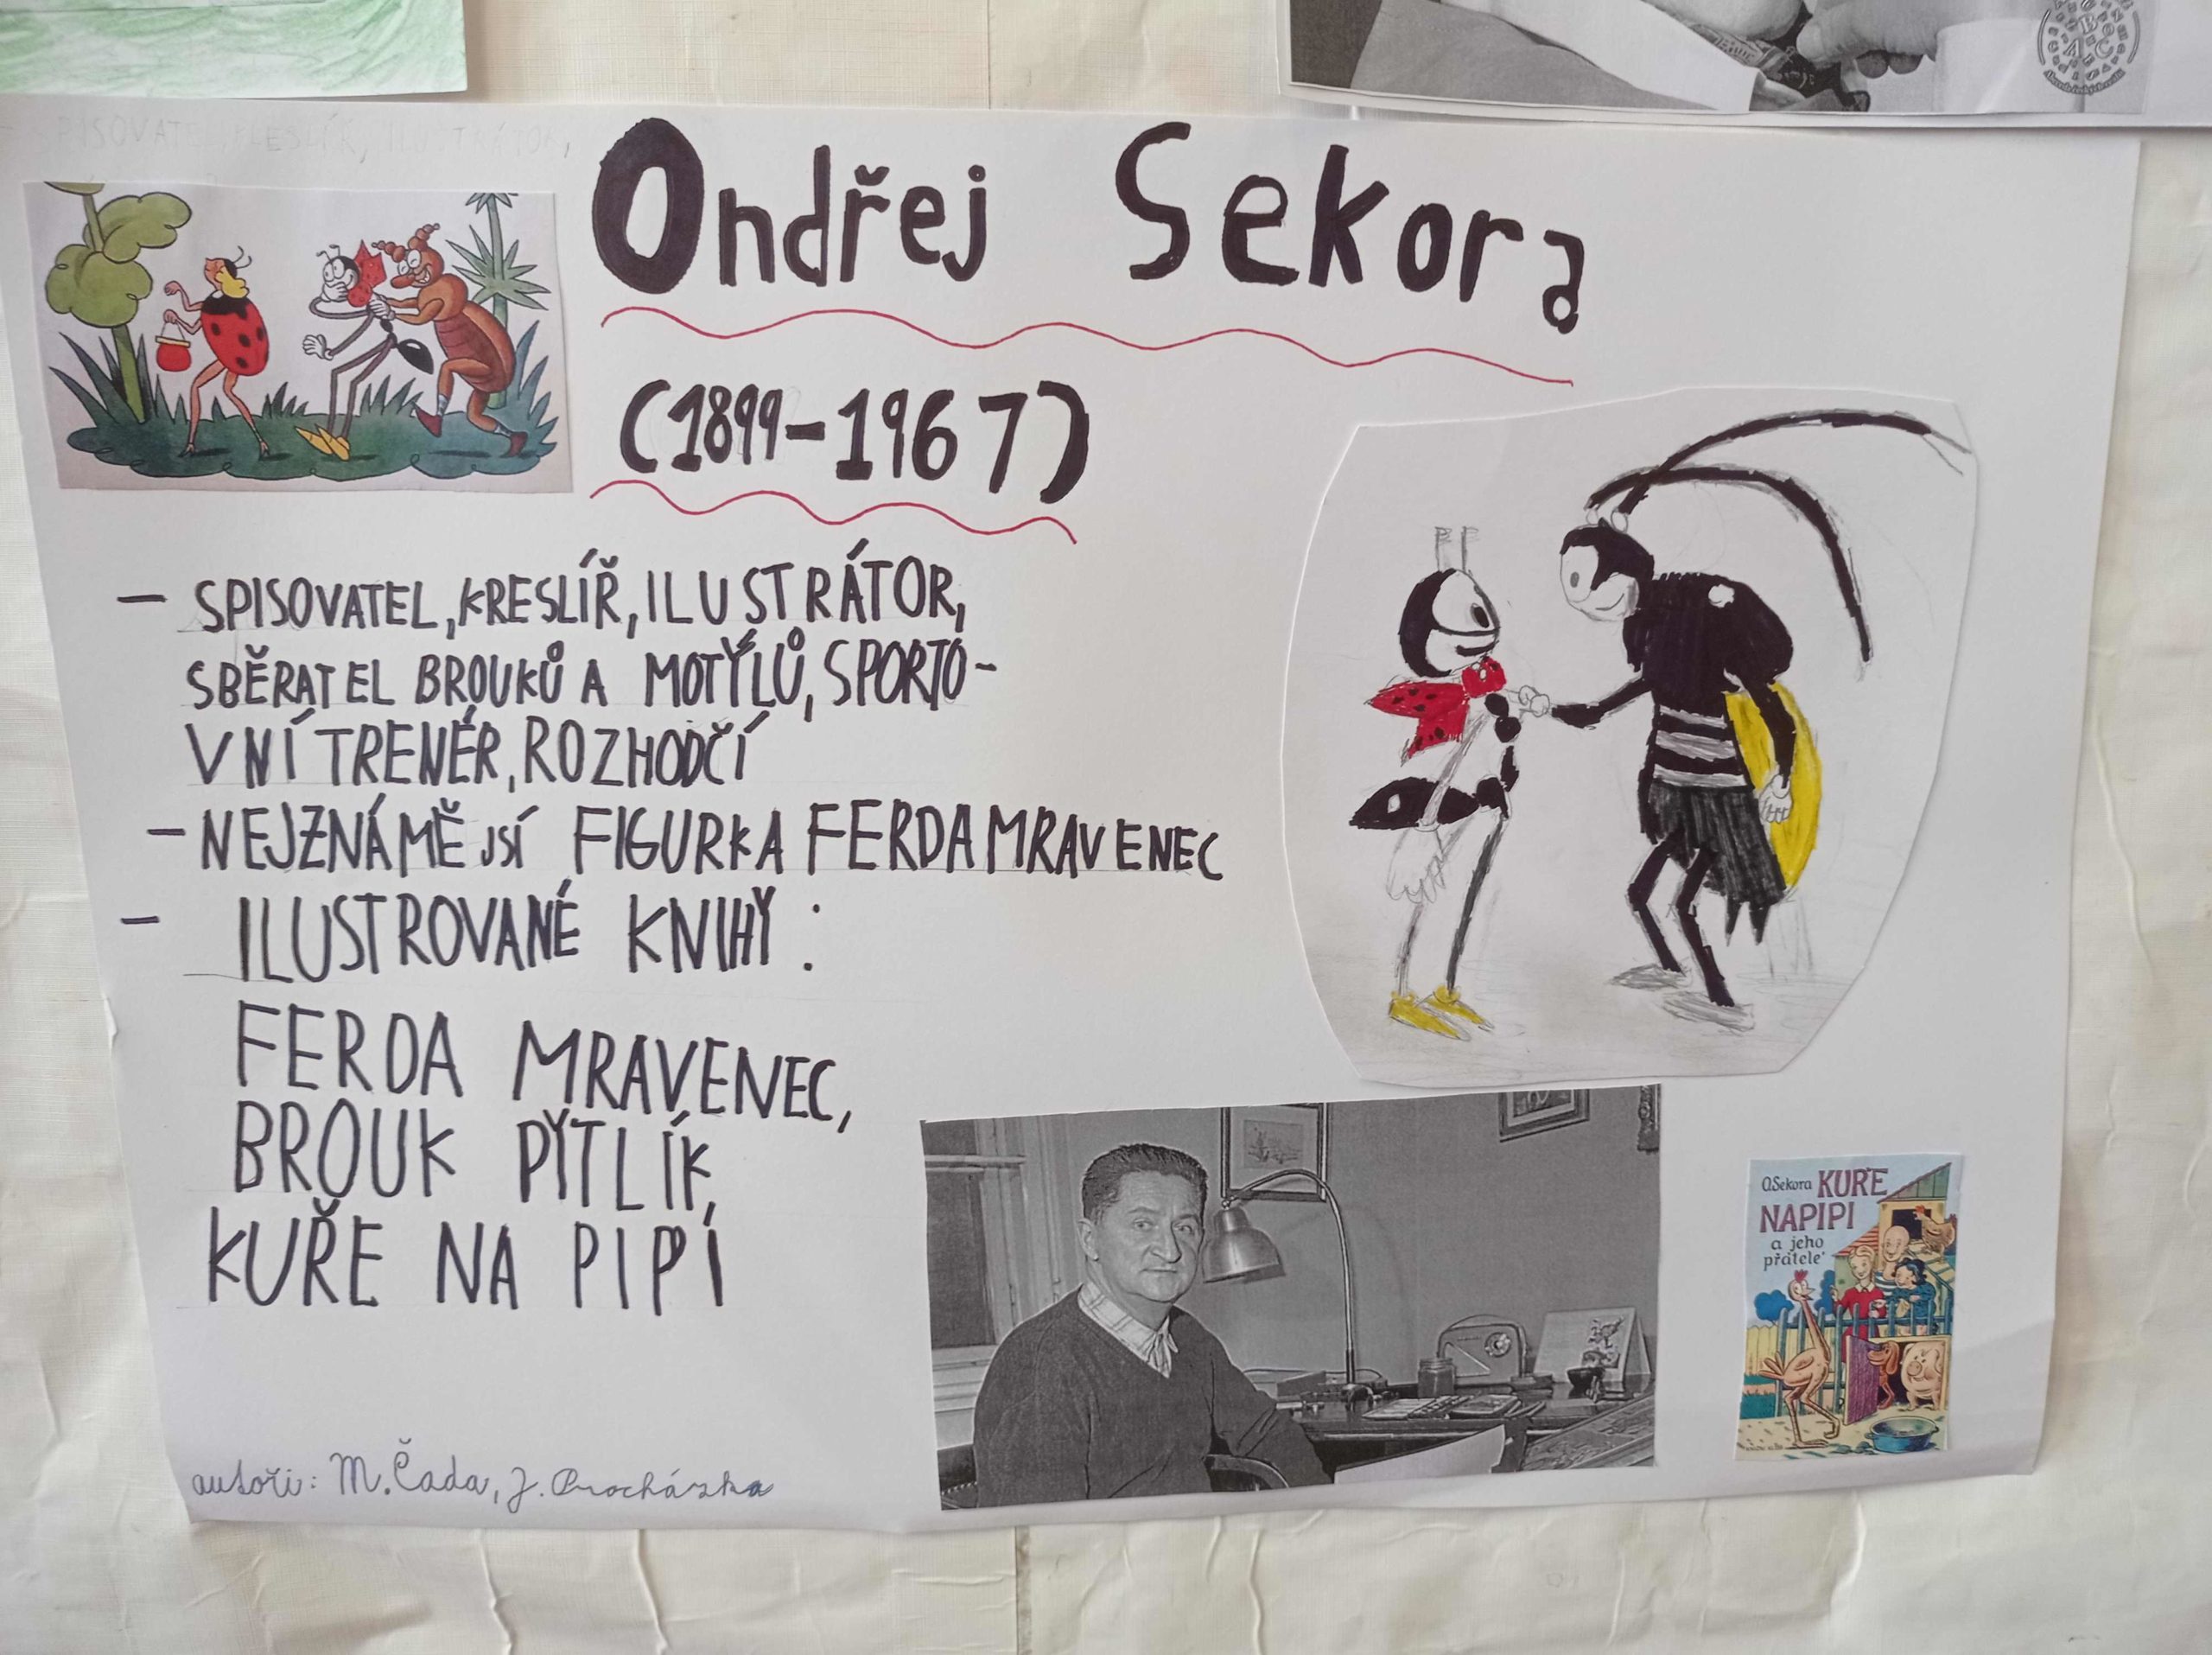 PISOVATEL, KRESLÍŘ, ILUSTRÁTOR,
Ondřej Sekora
(1899-1967)
- SPISOVATEL, KRESLÍŘ, ILUSTRÁTOR,
SBĚRATEL BROUKŮ A MOTÝLŮ, SPORTO-
VNÍ TRENÉR, ROZHODČÍ
- NEJZNÁMĚJSÍ FIGURKA FERDA MRAVENEC
- ILUSTROVANÉ KNIHY :
FERDA MRAVENEC,
BROUK PYTLÍK,
KUŘE NA PIPÍ
O.Sekora KUŘE
NAPIPI
a jeho
přátelé
autoři: M. Čada, J. Procházka